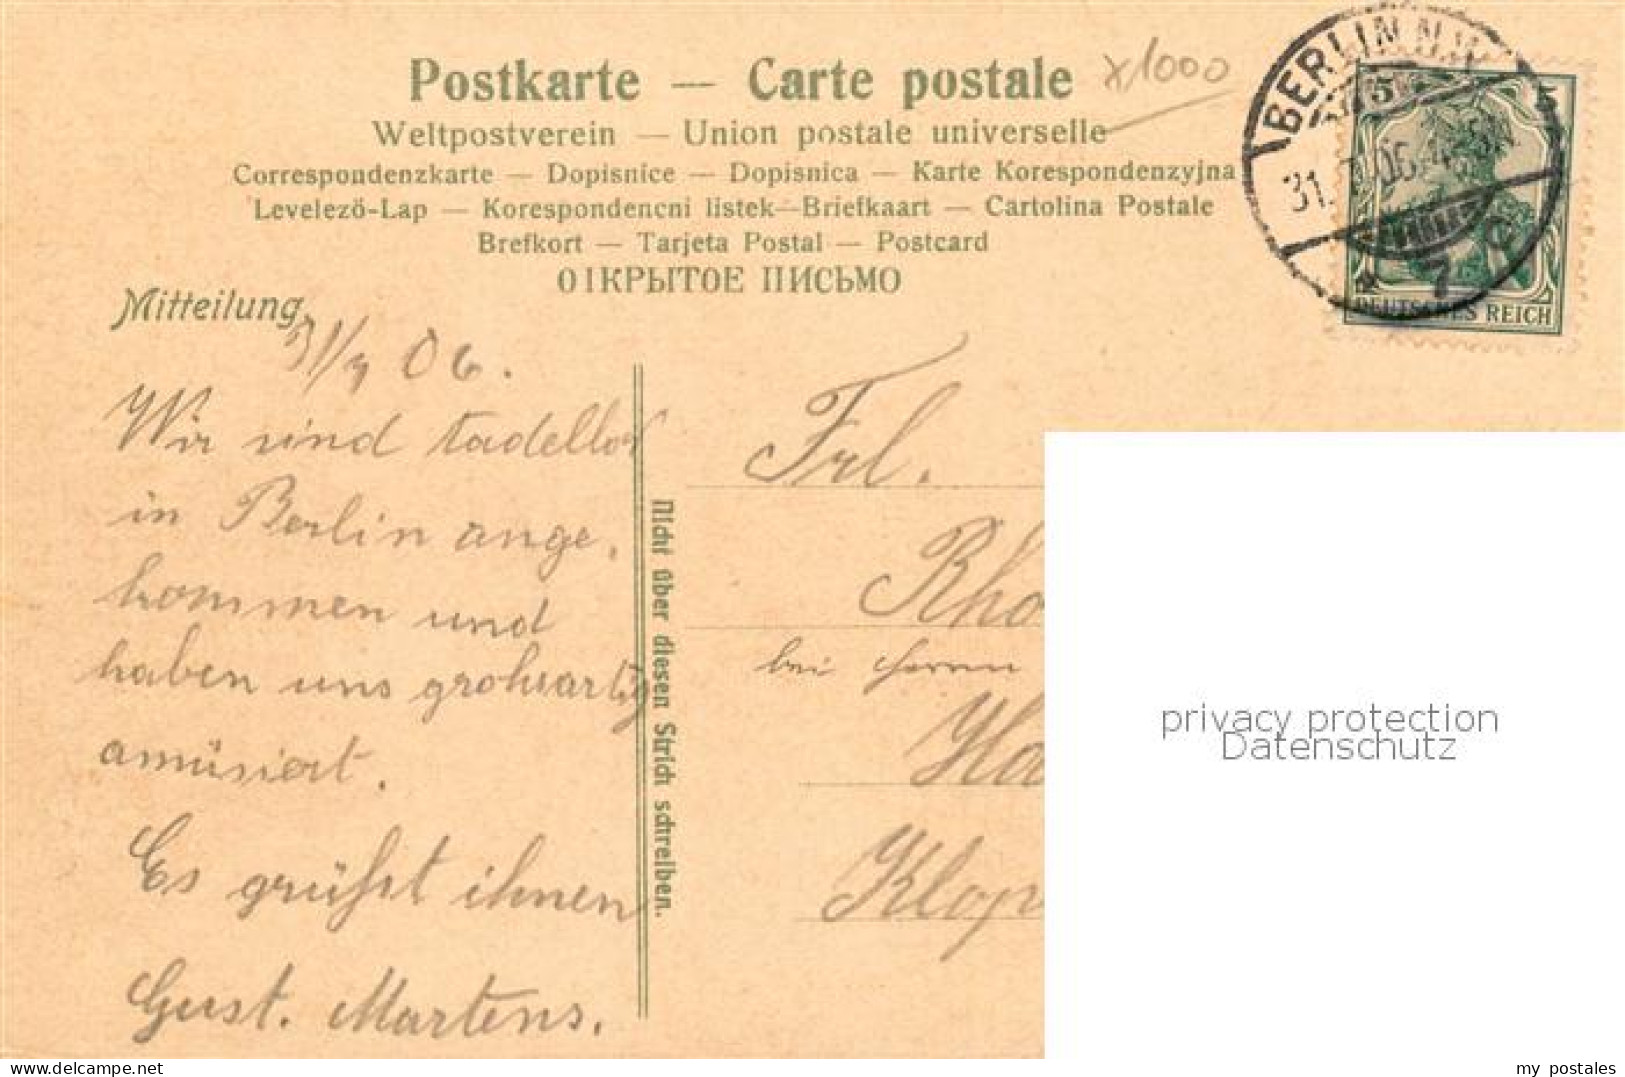 Postkarte — Carte postale
x1000
Weltpostverein — Union postale universelle
Correspondenzkarte — Dopisnice — Dopisnica — Karte Korespondenzyjna
Levelező-Lap — Korespondencni listek—Briefkaart — Cartolina Postale
Brefkort — Tarjeta Postal — Postcard
ОТКРЫТОЕ ПИСЬМО
BERLIN N.W.
5 5
31. 06.
7
DEUTSCHES REICH
Mitteilung
31/7 06.
Wir sind tadellos
in Berlin ange,
kommen und
haben uns großartig
amüsiert.
Es grüßt ihnen
Gust. Martens.
Nicht über diesen Strich schreiben.
Frl.
Rho
bei Herrn
Ha
Klop
privacy protection
Datenschutz
my postales